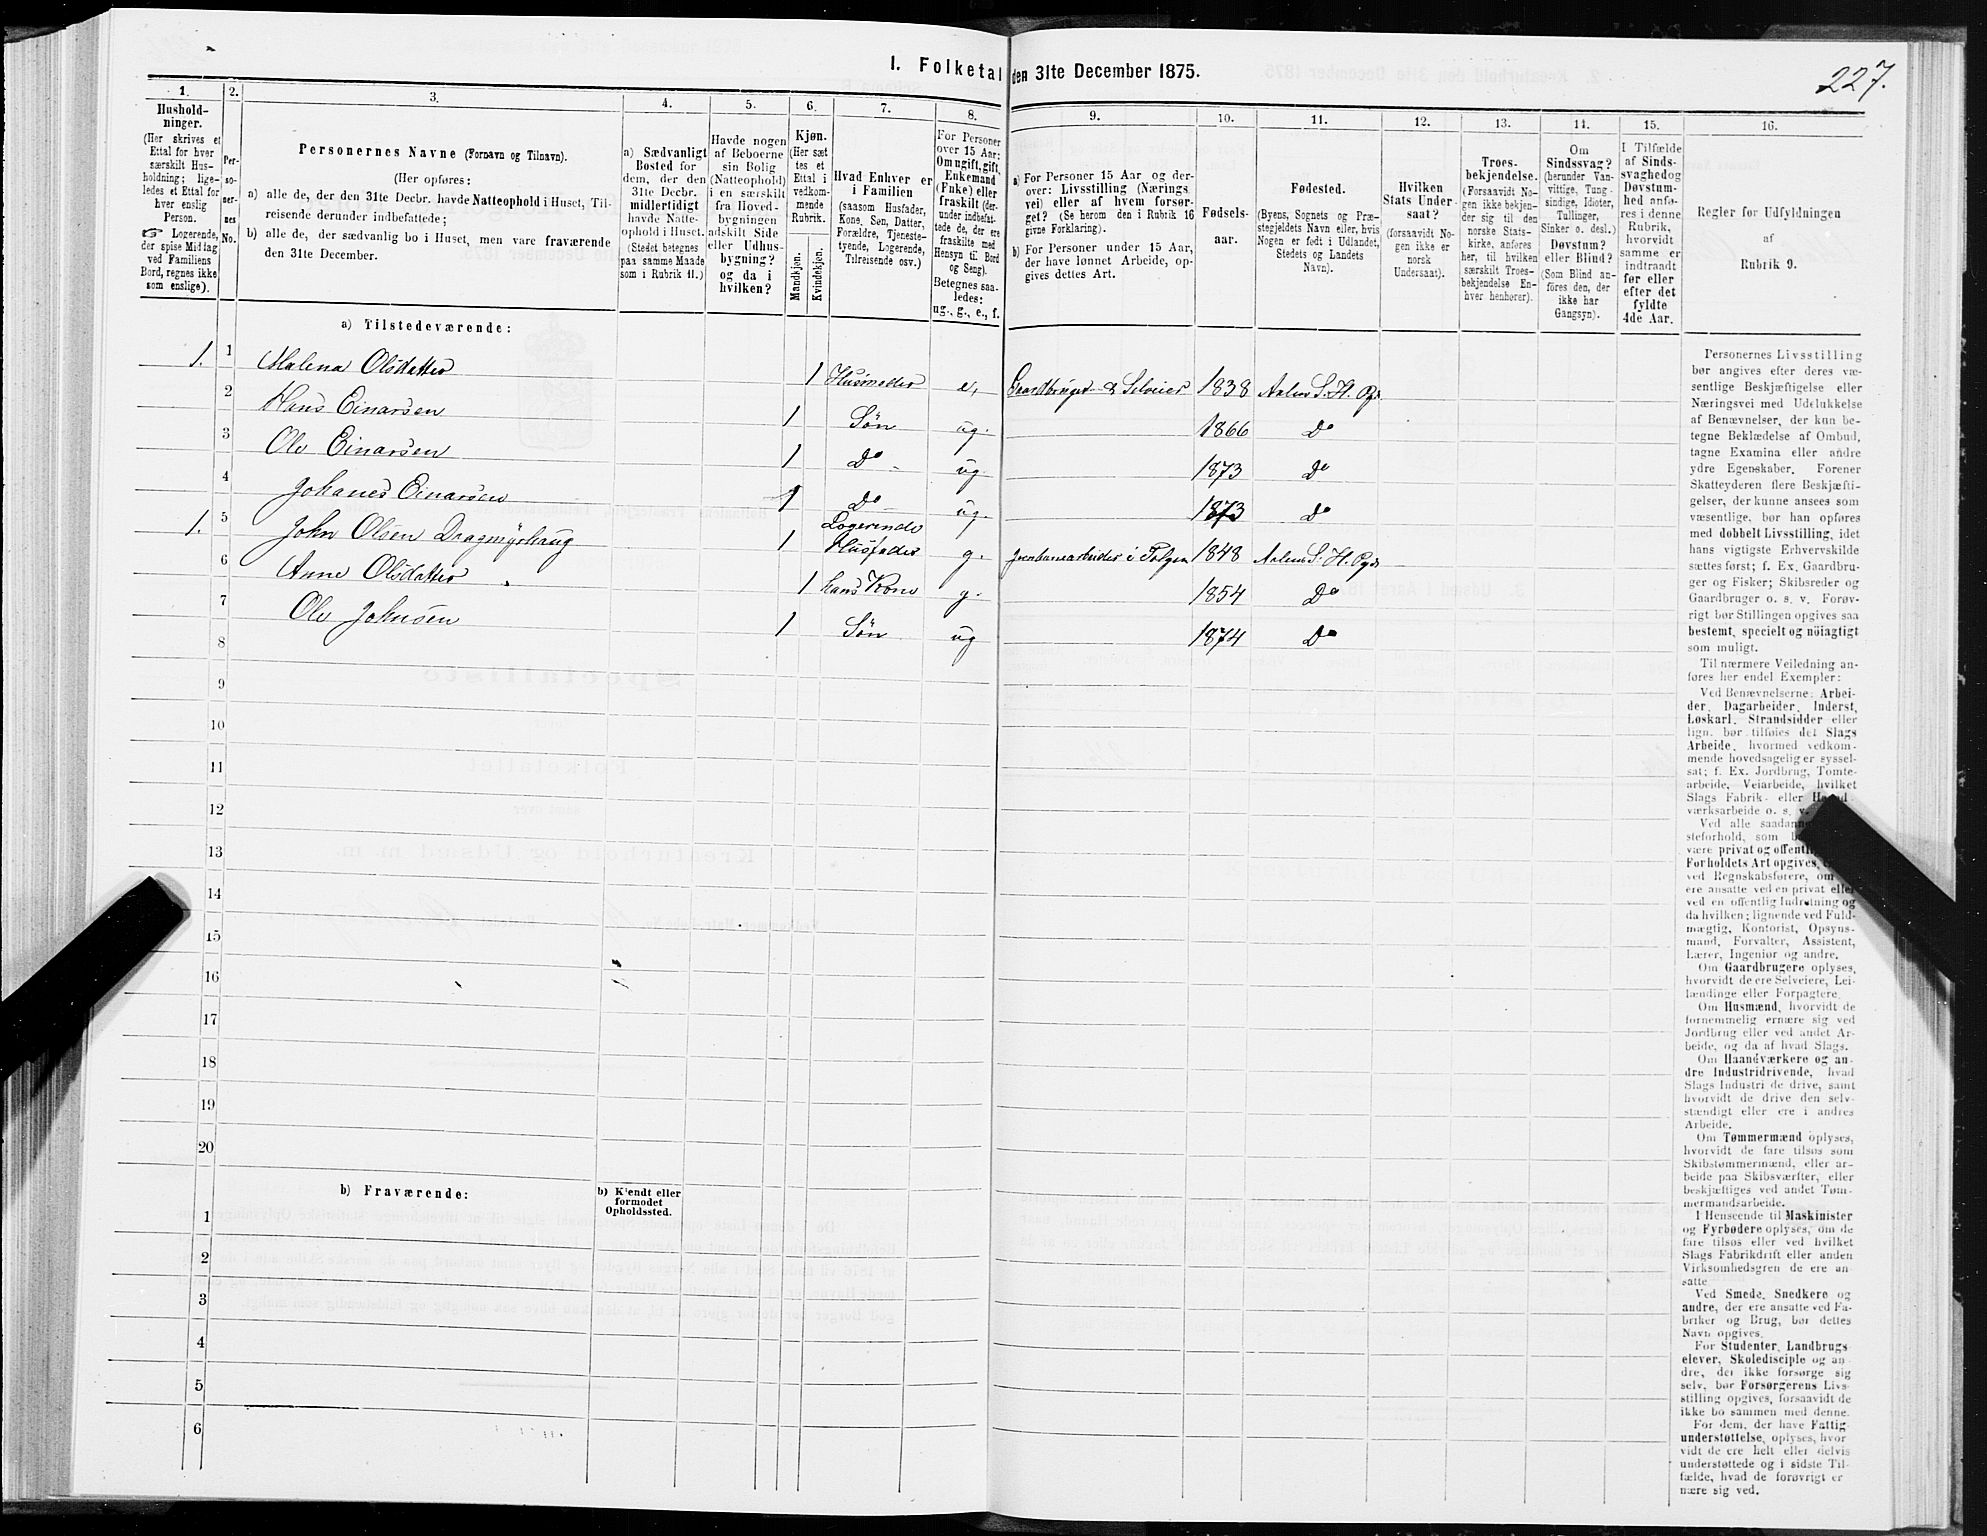 I. Folketal den 31te December 1875.
227.
1.
Hushold-
ninger.
(Her skrives et
Ettal for hver
særskilt Hus-
holdning; lige-
ledes et Ettal for
hver enslig
Person.
☞ Logerende,
der spise Middag
ved Familiens
Bord, regnes ikke
som enslige).
2.
Per-
so-
ner-
nes
No.
3.
Personernes Navne (Fornavn og Tilnavn).
(Her opføres:
a) alle de, der den 31te Decbr. havde Natteophold i Huset, Til-
reisende derunder indbefattede;
b) alle de, der sædvanlig bo i Huset, men vare fraværende
den 31te December.
4.
a) Sædvanligt
Bosted for
dem, der den
31te Decbr.
midlertidigt
havde Natte-
ophold i Huset.
(Stedet betegnes
paa samme Maade
som i Rubrik 11.)
5.
Havde nogen
af Beboerne
sin Bolig
(Natteophold)
i en særskilt
fra Hoved-
bygningen
adskilt Side
eller Udhus-
bygning?
og da i
hvilken?
6.
Kjøn.
(Her sæt
tes et
Ettal i
vedkom-
mende
Rubrik.
Mandkjøn.
Kvindekjøn.
7.
Hvad Enhver er
i Familien
(saasom Husfader,
Kone, Søn, Datter,
Forældre, Tjeneste-
tyende, Logerende,
Tilreisende osv.)
8.
For Personer
over 15 Aar:
Om ugift, gift,
Enkemand
(Enke) eller
fraskilt (der-
under indbefat-
tede de, der ere
fraskilte med
Hensyn til Bord
og Seng).
Betegnes saa-
ledes:
ug., g., e., f.
9.
a) For Personer 15 Aar og der-
over: Livsstilling (Nærings-
vei) eller af hvem forsør-
get? (Se herom den i Rubrik 16
givne Forklaring).
b) For Personer under 15 Aar,
der have lønnet Arbeide, op-
gives dettes Art.
10.
Fødsels-
aar.
11.
Fødested.
(Byens, Sognets og Præ-
stegjeldets Navn eller, hvis
Nogen er født i Udlandet,
Stedets og Landets
Navn).
12.
Hvilken
Stats Under-
saat?
(forsaavidt No-
gen ikke er
norsk
Undersaat).
13.
Troes-
bekjendelse.
(Forsaavidt No-
gen ikke bekjen-
der sig til den
norske Stats-
kirke, anføres
her, til hvilken
særskilt Troes-
bekjendelse En-
hver henhører).
14.
Om
Sindssvag?
(herunder Van-
vittige, Tung-
sindige, Idioter,
Tullinger,
Sinker o. desl.)
Døvstum?
eller Blind?
(Som Blind an-
føres den, der
ikke har
Gangsyn).
15.
I Tilfælde
af Sinds-
svaghed og
Døvstum-
hed anfø-
res i denne
Rubrik,
hvorvidt
samme er
indtraadt
før eller
efter det
fyldte
4de Aar.
16.
Regler for Udfyldningen
af
Rubrik 9.
a) Tilstedeværende:
1. 1 Malena Olsdatter 1 Husmoder e, Gaardbruger & Selveier 1838 Aalens S. H. Pgd
2 Hans Einarsen 1 Søn ug. 1866 Do
3 Ole Einarsen 1 Do ug 1873 Do
4 Johanes Einarsen 1 Do ug. 1873 Do
1. 5 John Olsen Dragmyrhaug 1 Logerende Husfader g. Jernbanearbeider i Tolgen 1848 Aalens S. H. Pgd
6 Anne Olsdatter 1 hans Kone g. 1854 Do
7 Ole Johnsen 1 Søn ug 1874 Do
8
9
10
11
12
13
14
15
16
17
18
19
20
b) Fraværende:
b) Kjendt eller
formodet
Opholdssted.
1
2
3
4
5
6
Personernes Livsstilling
bør angives efter deres væ-
sentlige Beskjæftigelse eller
Næringsvei med Udelukkelse
af Benævnelser, der kun be-
tegne Beklædelse af Ombud,
tagne Examina eller andre
ydre Egenskaber. Forener
Skatteyderen flere Beskjæfti-
gelser, der kunne ansees som
væsentlige, bør han opføres
med dobbelt Livsstilling, idet
hans vigtigste Erhvervskilde
sættes først; f. Ex. Gaardbru-
ger og Fisker; Skibsreder og
Gaardbruger o. s. v. Forøv-
rigt bør Stillingen opgives saa
bestemt, specielt og nöiagtigt
som muligt.
Til nærmere Veiledning an-
føres her endel Exempler:
Ved Benævnelserne: Arbei-
der, Dagarbeider, Inderst,
Løskarl, Strandsidder eller
lign. bør tilføies det Slags
Arbeide, hvormed vedkom-
mende hovedsagelig er syssel-
sat; f. Ex. Jordbrug, Tomte-
arbeide, Veiarbeide, hvilket
Slags Fabrik- eller Haand-
værksarbeide o. s. v.
Ved alle saadanne
steforhold, som
være privat og offentlig
Forholdets Art opgives,
ved Regnskabsførere, om
ere ansatte ved en privat eller
ved en offentlig Indretning og
da hvilken; lignende ved Fuld-
mægtig, Kontorist, Opsyns-
mand, Forvalter, Assistent,
Lærer, Ingeniør og andre.
Om Gaardbrugere oplyses,
hvorvidt de ere Selveiere, Lei-
lændinge eller Forpagtere.
Om Husmænd, hvorvidt de
fornemmelig ernære sig ved
Jordbrug eller ved andet Ar-
beide, og da af hvad Slags.
Om Haandværkere og an-
dre Industridrivende, hvad
Slags Industri de drive, samt
hvorvidt de drive den selv-
stændigt eller ere i andres
Arbeide.
Om Tømmermænd oplyses,
hvorvidt de fare tilsøs som
Skibstømmermænd, eller ar-
beide paa Skibsværfter, eller
beskjæftiges ved andet Tøm-
mermandsarbeide.
I Henseende til Maskinister
og Fyrbødere oplyses, om de
fare tilsøs eller ved hvilket
Slags Fabrikdrift eller anden
Virksomhedsgren de ere an-
satte.
Ved Smede, Snedkere og
andre, der ere ansatte ved Fa-
briker og Brug, bør dettes
Navn opgives.
For Studenter, Landbrugs-
elever, Skoledisciple og an-
dre, der ikke forsørge sig
selv, bør Forsørgerens Livs-
stilling opgives, forsaavidt de
ikke bo sammen med denne.
For dem, der have Fattig-
understøttelse, oplyses, hvor-
vidt de ere helt eller delvis
understøttede og i sidste Til-
fælde, hvad de forøvrigt er-
nære sig ved.